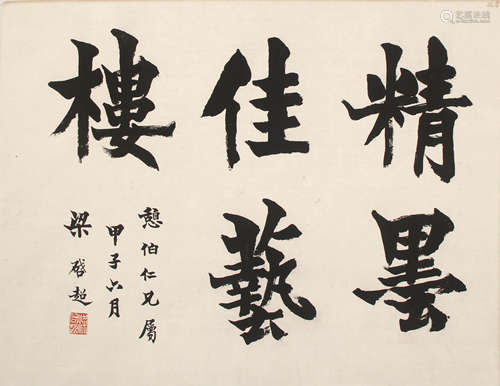 精墨
佳藝
樓
憩伯仁兄屬
甲子六月
梁啓超